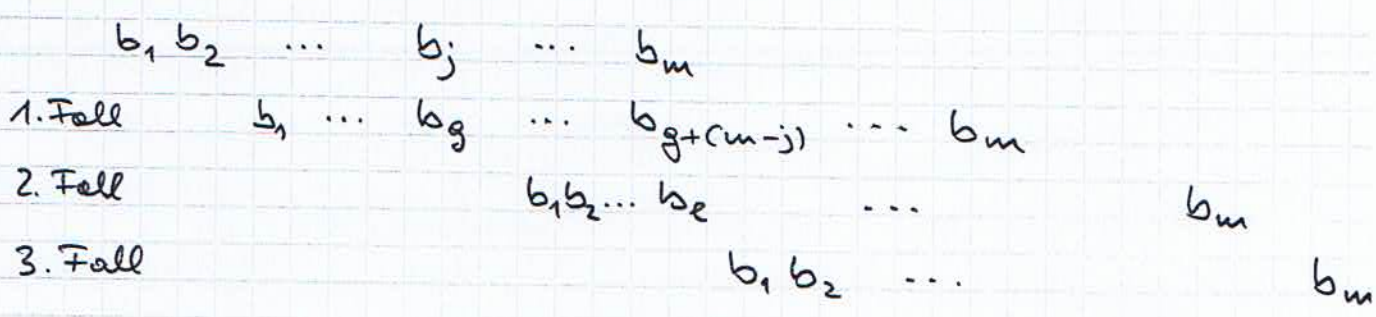 b₁ b₂ ... bⱼ ... bₘ
1. Fall b₁ ... b_g ... b_{g+(m-j)} ... bₘ
2. Fall b₁b₂... b_l ... bₘ
3. Fall b₁ b₂ ... bₘ